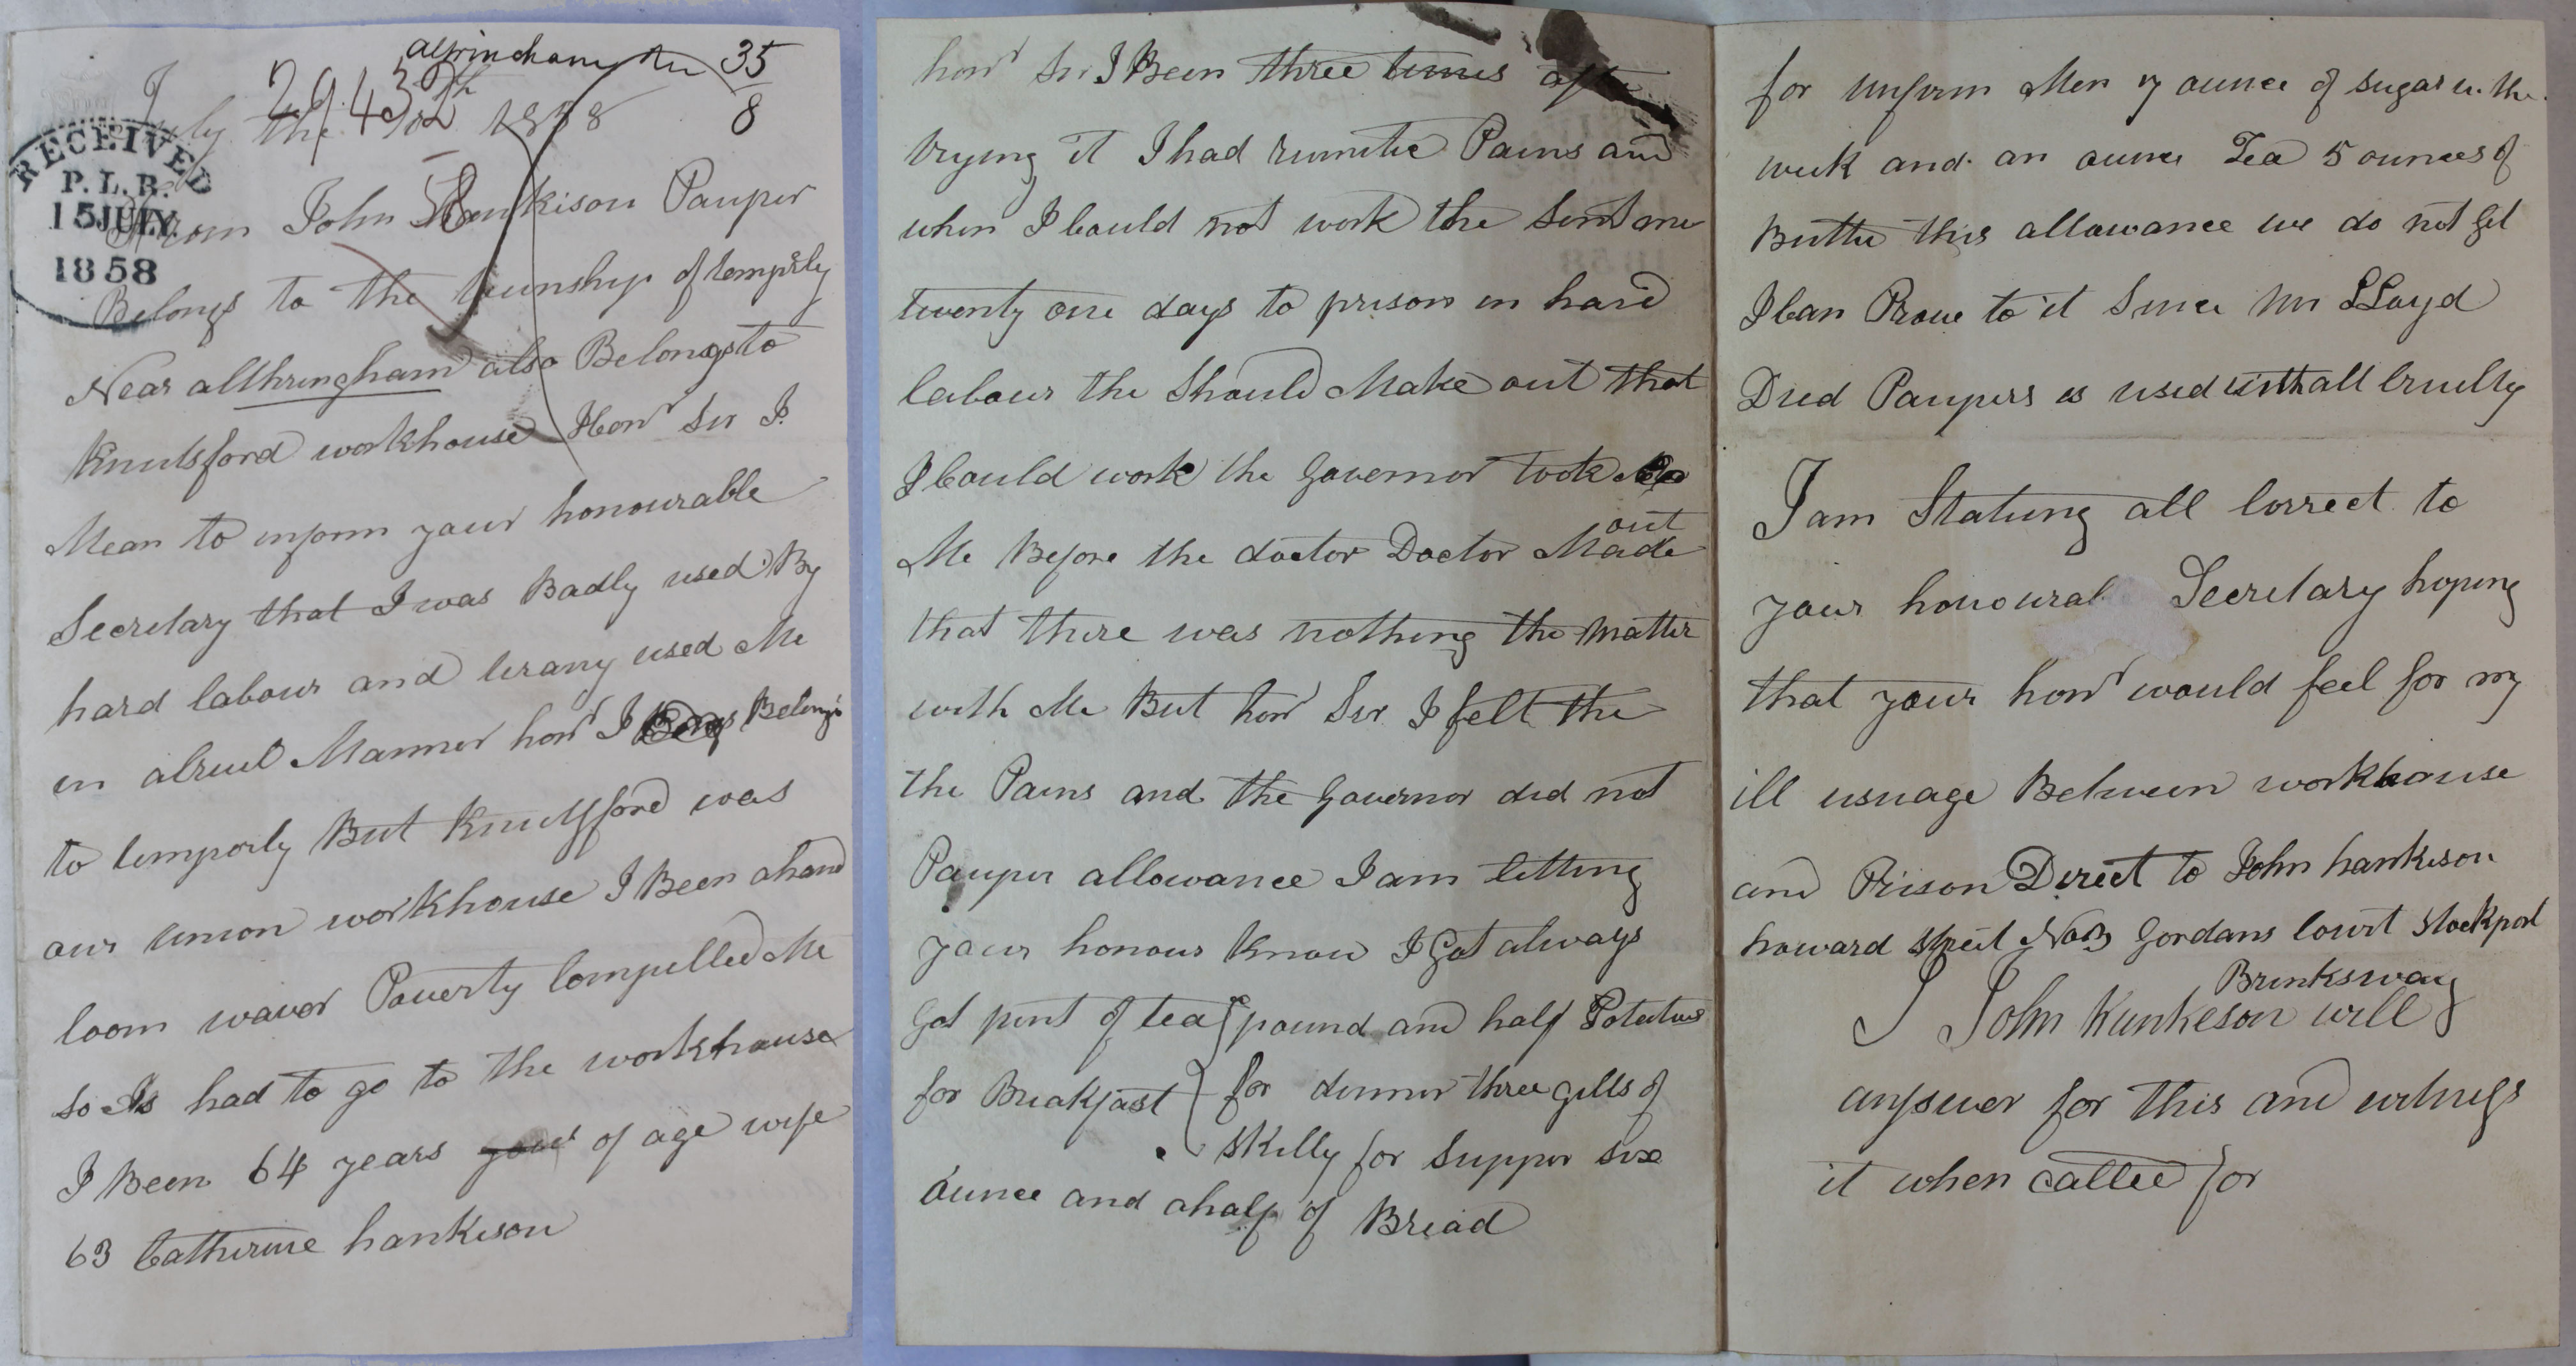 altrincham Un 35
8
29432
July the 1858
RECEIVED
P.L.B.
15 JULY
1858
From John Hankison Pauper
Belongs to the township of temperly
Near althringham also Belongs to
Knutsford workhouse Honr Sir I
Mean to inform your honourable
Secretary that I was Badly used By
hard labour and terany used Me
in a Cruel Manner honr I Belongs
to temporly But Knutsford was
our union workhouse I Been a hand
loom waver Poverty Compelled Me
so I had to go to the workhouse
I Been 64 years of age wife
63 Catherine hankison
honr Sir I Been three times after
trying it I had rumitic Pains and
when I Could not work the Sent me
twenty one days to prison in hard
labour the Should Make out that
I Could work the Governor took
Me Before the doctor Doctor Made out
that there was nothing the matter
with Me But honr Sir I felt the
the Pains and the Governor did not
Pauper allowance I am letting
your honour know I Got always
Got pint of tea } pound and half Potatoes
for Breakfast } for dinner three gills of
skilly for supper six
ounce and a half of Bread
for unfirm Men 7 ounce of sugar in the
week and an ounce Tea 5 ounces of
Butter this allowance we do not get
I Can Prove to it Since Mr LLoyd
Died Paupers is used with all Cruelty
I am Stating all Correct to
your honoural Secretary hoping
that your honr would feel for my
ill usuage Between workhouse
and Prison Direct to John hankison
howard street No 3 Gordans Court Stockport
Brinksway
I John Kunkeson will
answer for this and witness
it when called for